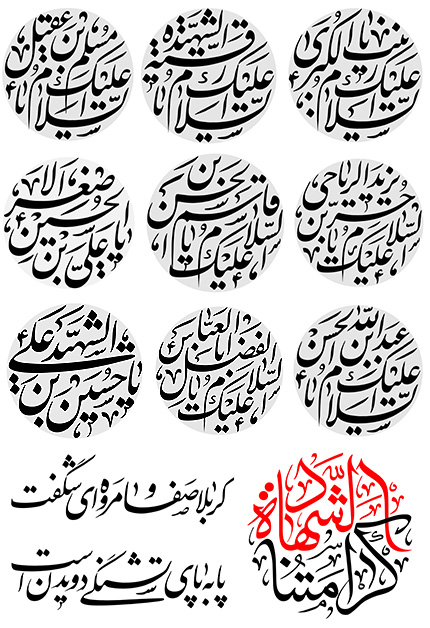 السلام علیک یا زینب الکبری
السلام علیک یا رقیة الشهیده
السلام علیک یا مسلم بن عقیل
السلام علیک یا حر بن یزید الریاحی
السلام علیک یا قاسم بن الحسن
یا علی بن الحسین الاصغر
السلام علیک یا عبدالله ابن الحسن
السلام علیک یا اباالفضل العباس
یا حسین بن علی الشهید
کرامتنا الشهادة
کربلا صفا و مروه ای شگفت
پا به پای تشنگی دویدن است